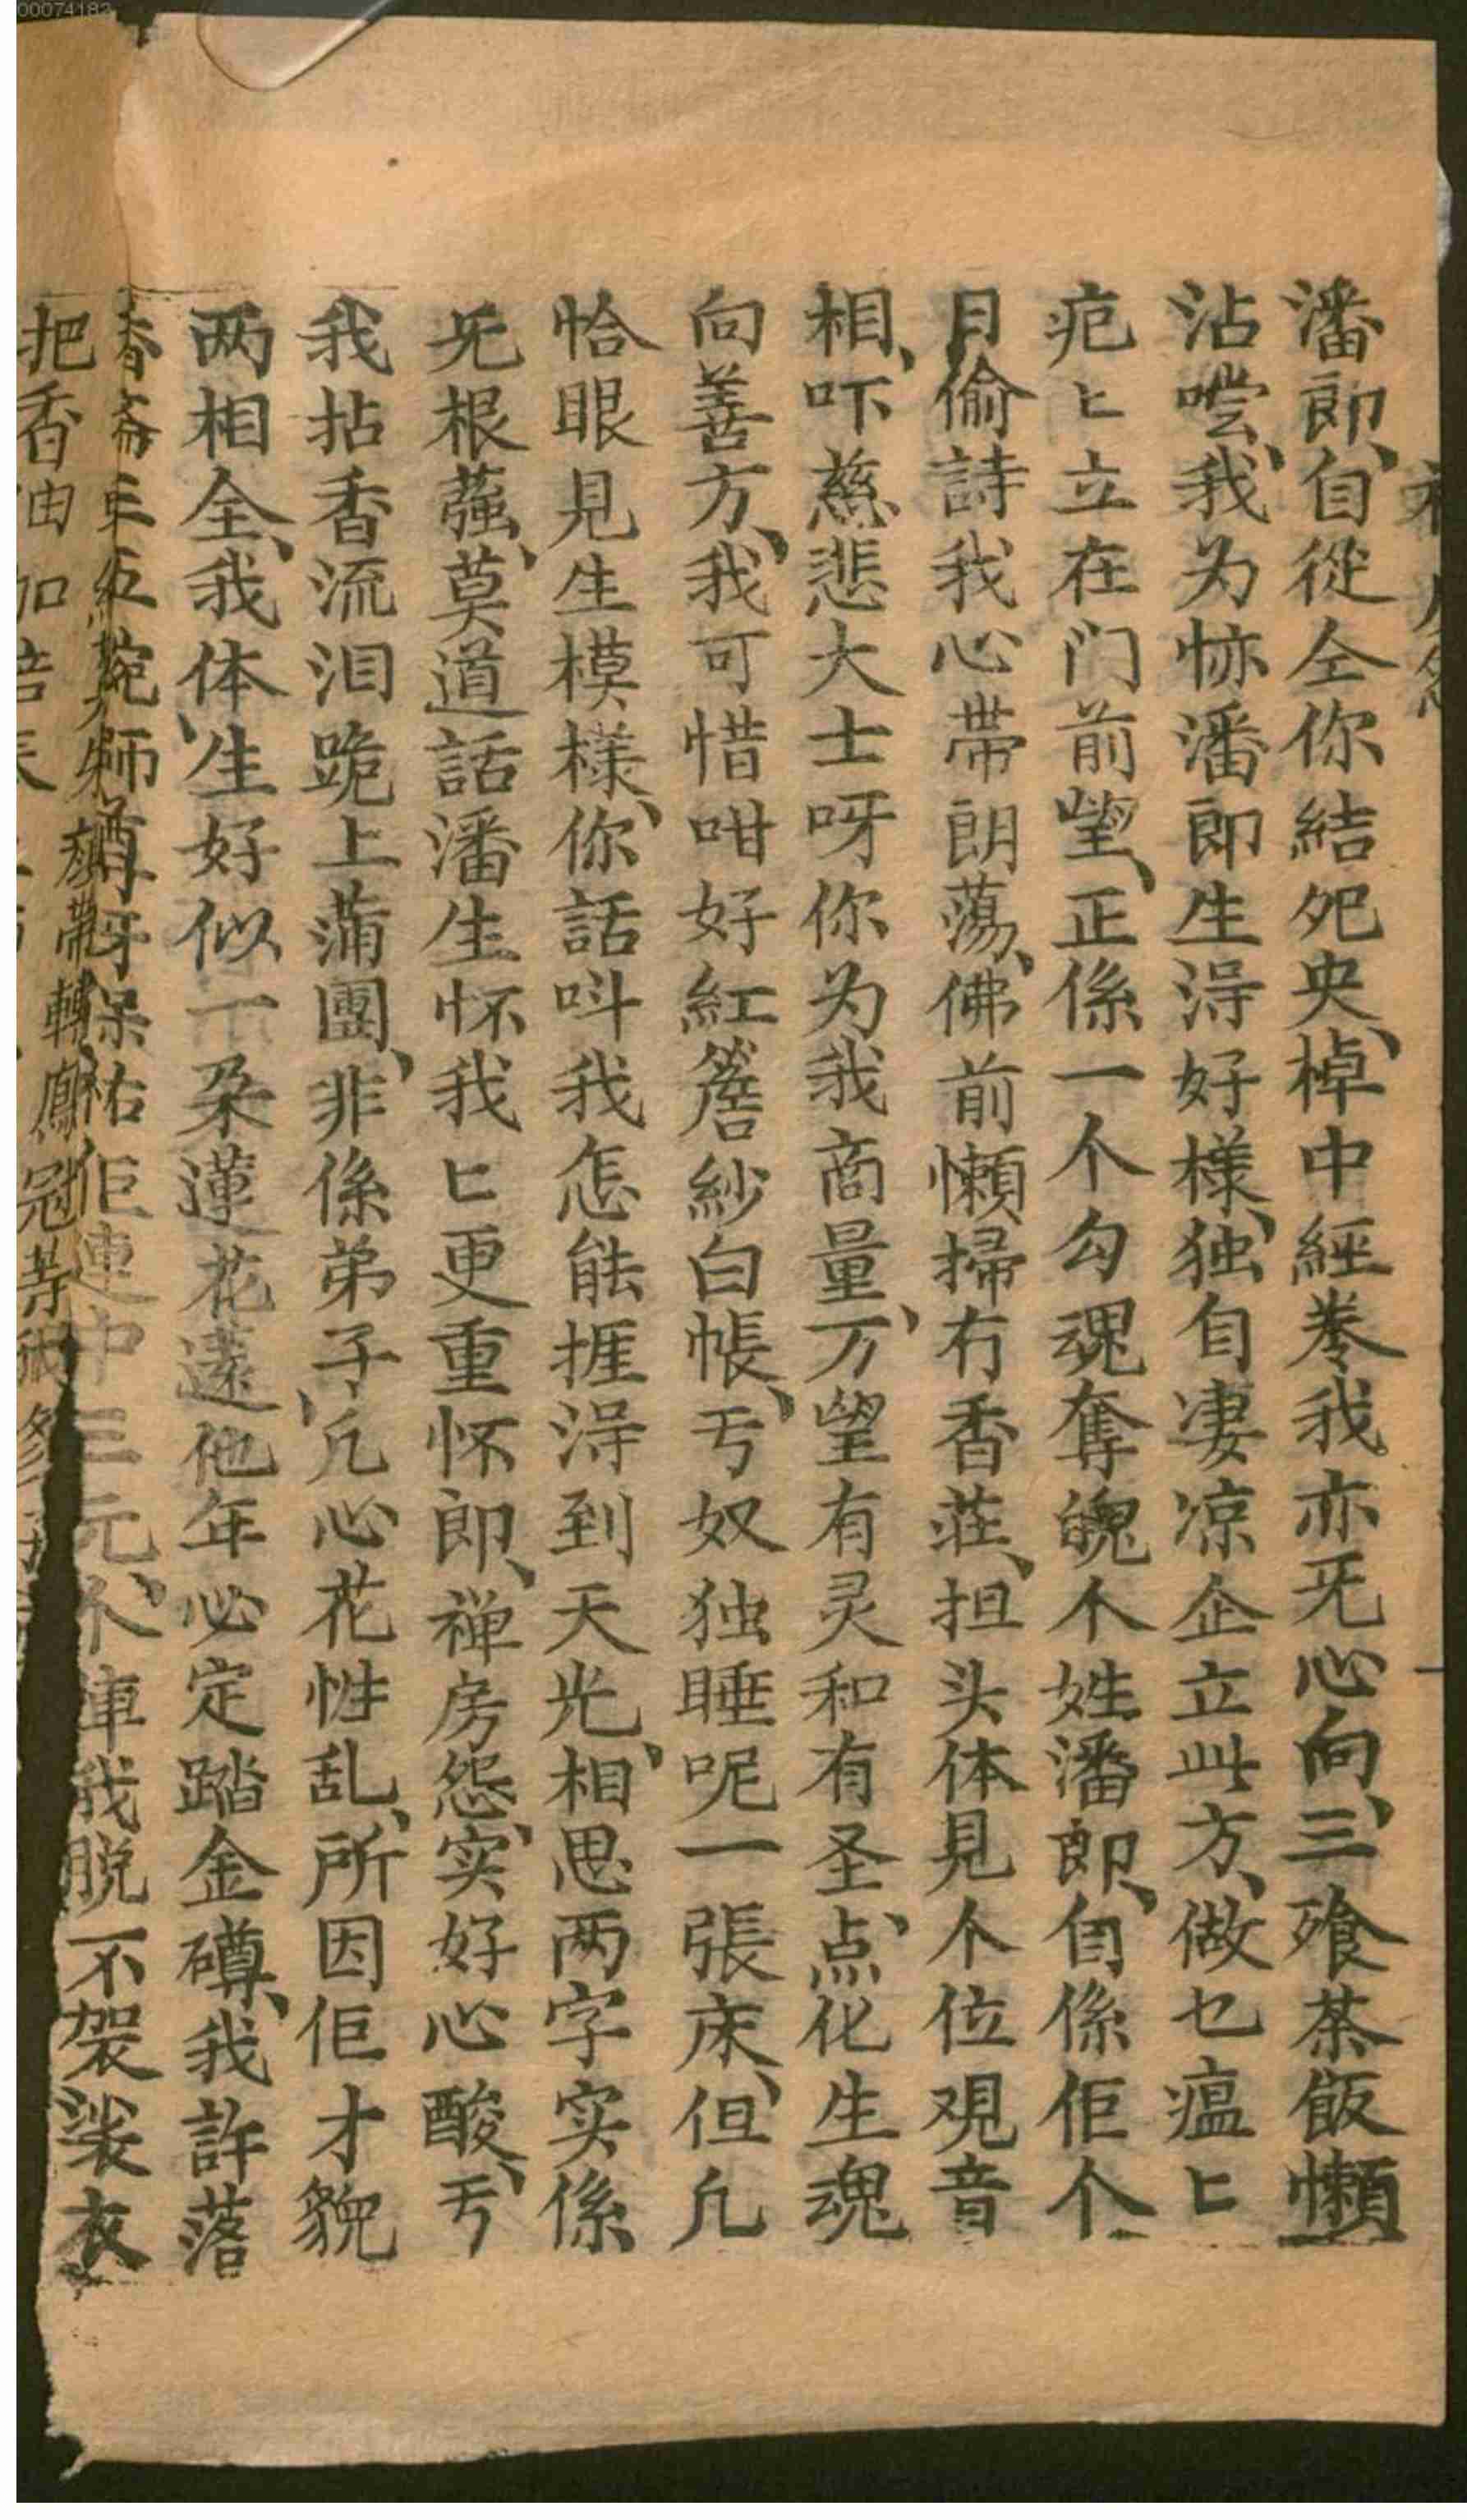 潘郎、自從仝你結死央、棹中經券我亦旡心向、三飱茶飯懶
沾嚐、我为恀潘郎生淂好樣、独自凄凉企立此方、做乜瘟匕
疤匕立在门前望、正係一个勾魂奪魄个姓潘郎、自係佢个
月偷詩我心帶朗蕩、佛前懶掃冇香荘、担头体見个位观音
相、吓慈悲大士呀你为我商量、万望有灵和有圣、点化生魂
向善方、我可惜咁好紅簷紗白帳、亏奴独睡呢一張床、但凡
恰眼見生模樣、你話呌我怎能捱淂到天光、相思两字实係
旡根蕴、莫道話潘生怀我匕更重怀郎、禅房怨、实好心酸、亏
我拈香流泪跪上蒲團、非係弟子、凡心花性乱、所因佢才貌
两相全、我体、生好似一朶蓮花遠他年必定踏金磚、我許落
香斋
師尊呀保祐佢連中三元、个陣我脱不袈裟衣
把香油